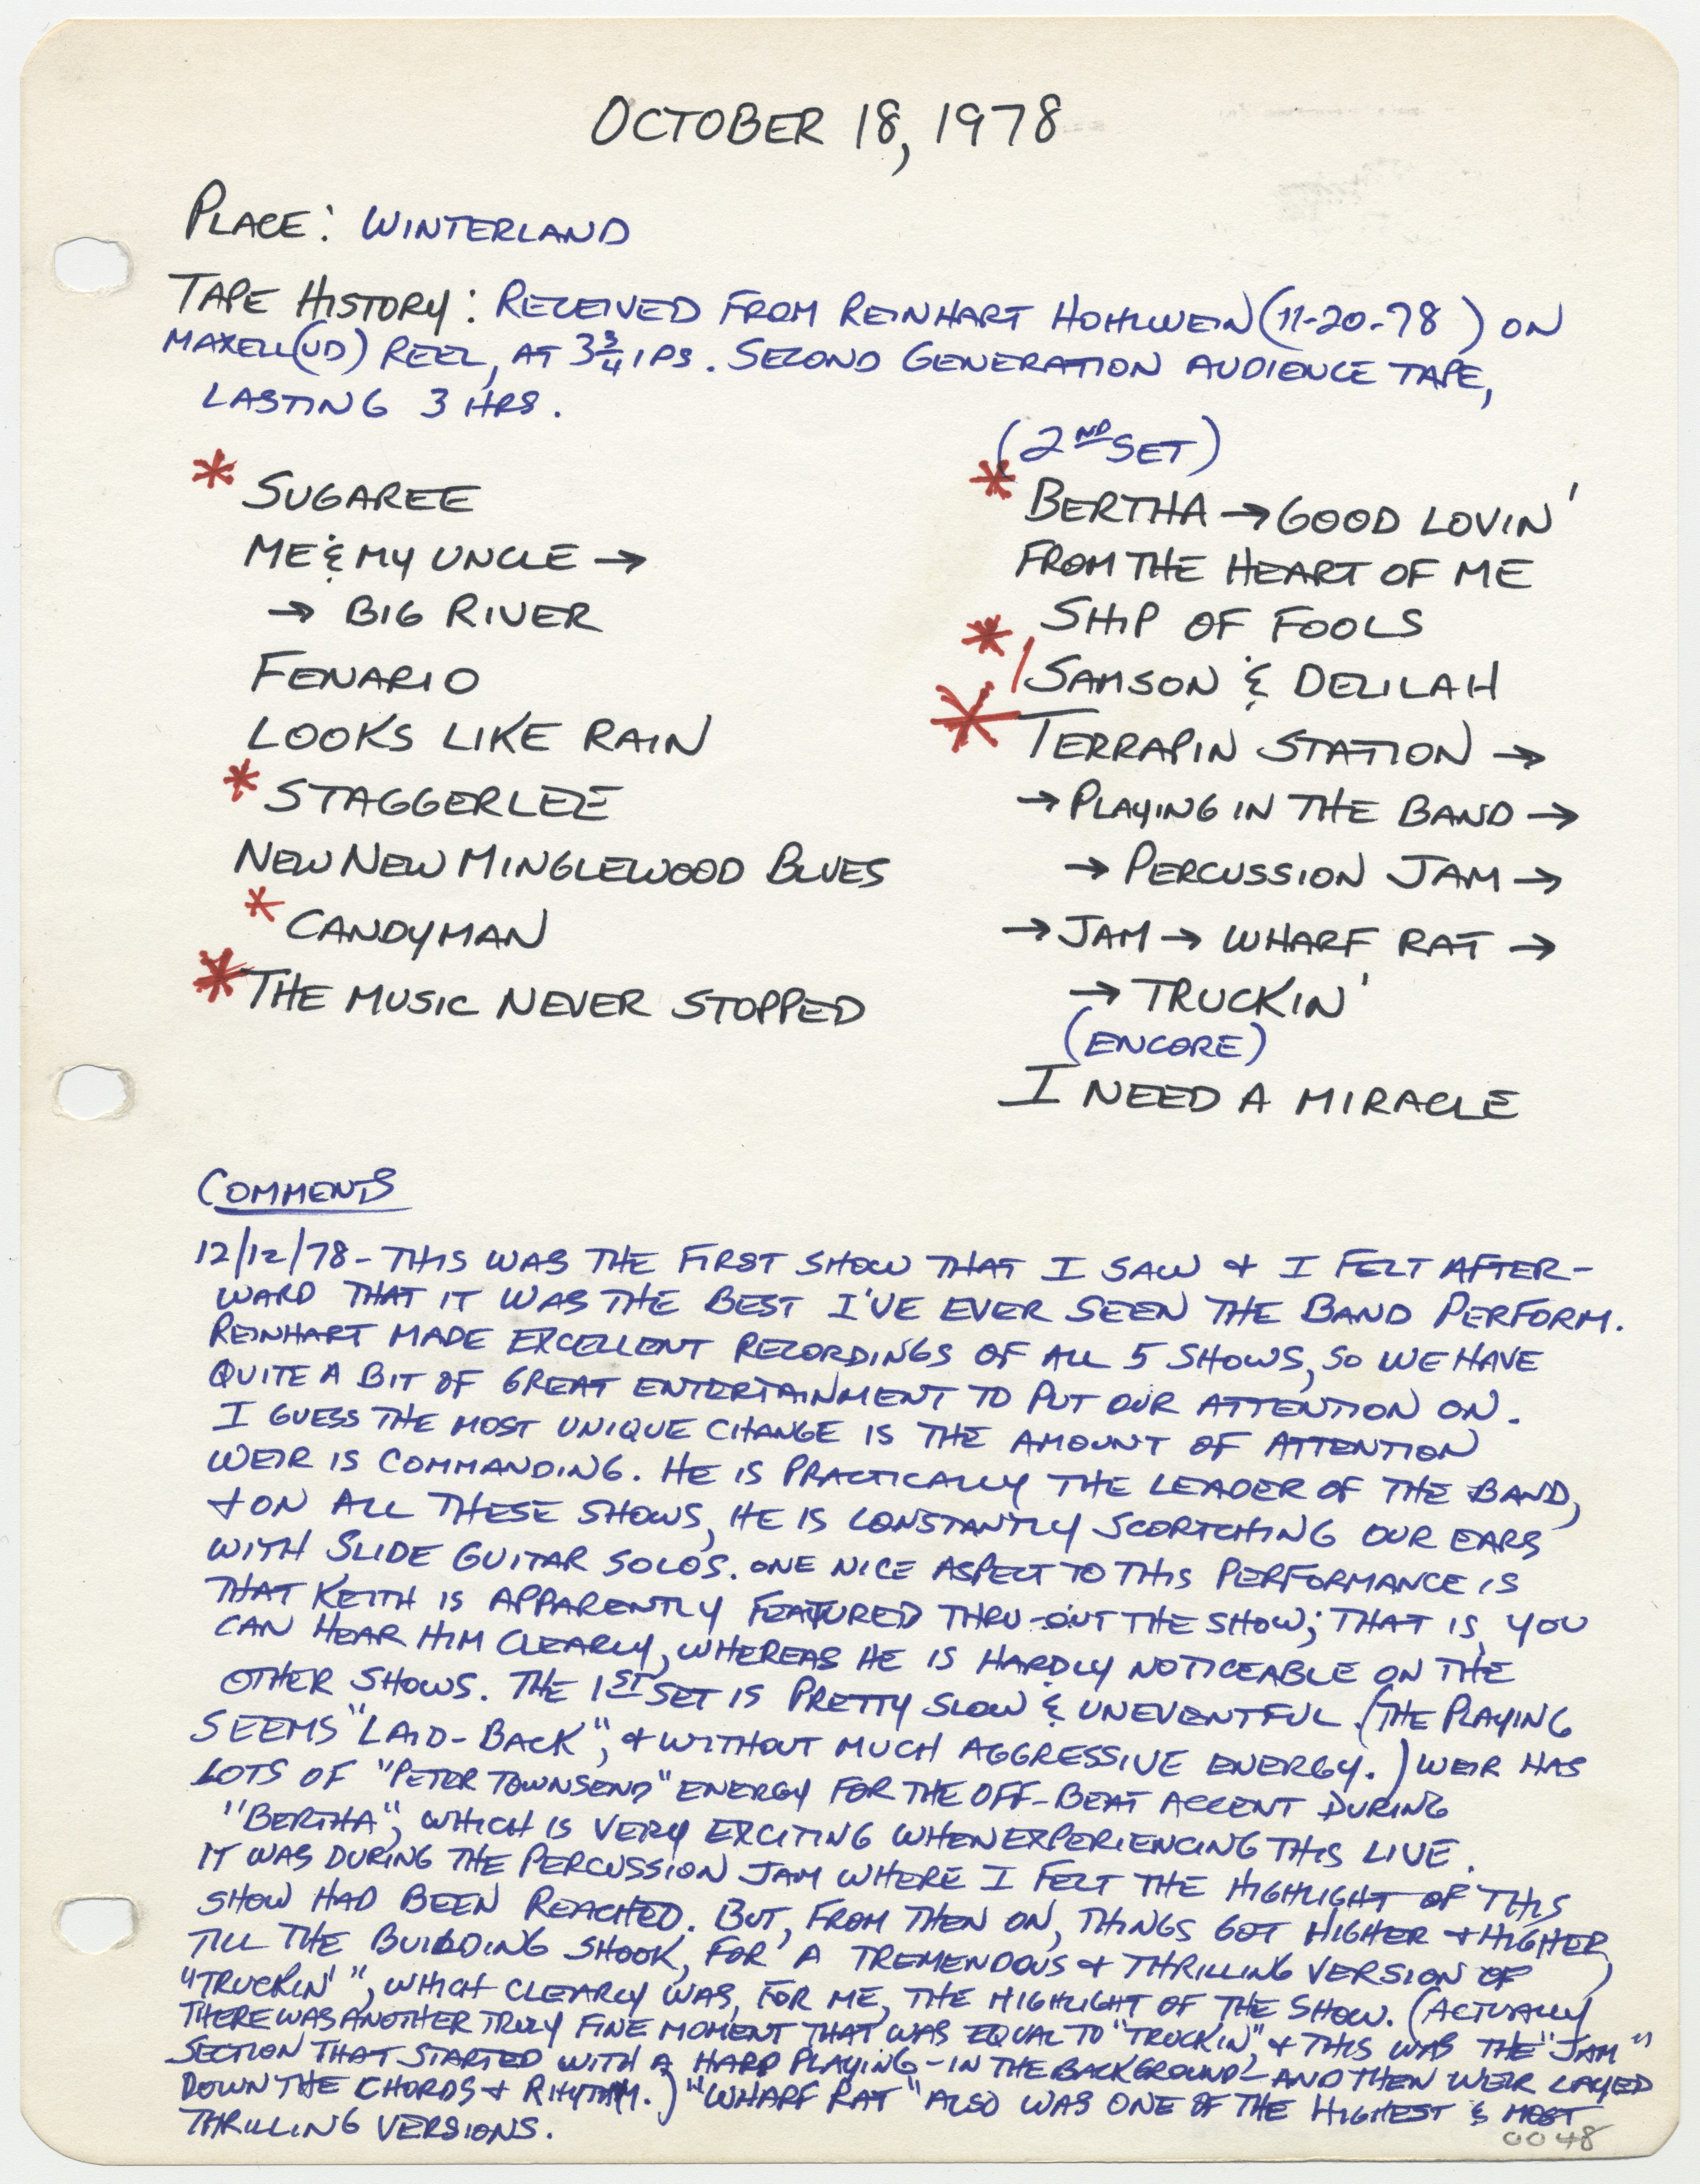 OCTOBER 18, 1978
PLACE: WINTERLAND
TAPE HISTORY: RECEIVED FROM REINHART HOHLWEIN (11-20-78) ON
MAXELL (UD) REEL, AT 3 3/4 IPS. SECOND GENERATION AUDIENCE TAPE,
LASTING 3 HRS.
* SUGAREE
ME & MY UNCLE →
→ BIG RIVER
FENARIO
LOOKS LIKE RAIN
* STAGGERLEE
NEW NEW MINGLEWOOD BLUES
* CANDYMAN
* THE MUSIC NEVER STOPPED
(2ND SET)
* BERTHA → GOOD LOVIN'
FROM THE HEART OF ME
SHIP OF FOOLS
* / SAMSON & DELILAH
* TERRAPIN STATION →
→ PLAYING IN THE BAND →
→ PERCUSSION JAM →
→ JAM → WHARF RAT →
→ TRUCKIN'
(ENCORE)
I NEED A MIRACLE
COMMENTS
12/12/78 - THIS WAS THE FIRST SHOW THAT I SAW & I FELT AFTER-
WARD THAT IT WAS THE BEST I'VE EVER SEEN THE BAND PERFORM.
REINHART MADE EXCELLENT RECORDINGS OF ALL 5 SHOWS, SO WE HAVE
QUITE A BIT OF GREAT ENTERTAINMENT TO PUT OUR ATTENTION ON.
I GUESS THE MOST UNIQUE CHANGE IS THE AMOUNT OF ATTENTION
WEIR IS COMMANDING. HE IS PRACTICALLY THE LEADER OF THE BAND,
& ON ALL THESE SHOWS, HE IS CONSTANTLY SCORTCHING OUR EARS
WITH SLIDE GUITAR SOLOS. ONE NICE ASPECT TO THIS PERFORMANCE IS
THAT KEITH IS APPARENTLY FEATURED THRU-OUT THE SHOW; THAT IS, YOU
CAN HEAR HIM CLEARLY, WHEREAS HE IS HARDLY NOTICEABLE ON THE
OTHER SHOWS. THE 1ST SET IS PRETTY SLOW & UNEVENTFUL. (THE PLAYING
SEEMS "LAID-BACK", & WITHOUT MUCH AGGRESSIVE ENERGY.) WEIR HAS
LOTS OF "PETER TOWNSEND" ENERGY FOR THE OFF-BEAT ACCENT DURING
"BERTHA", WHICH IS VERY EXCITING WHEN EXPERIENCING THIS LIVE.
IT WAS DURING THE PERCUSSION JAM WHERE I FELT THE HIGHLIGHT OF THIS
SHOW HAD BEEN REACHED. BUT, FROM THEN ON, THINGS GOT HIGHER & HIGHER,
TILL THE BUILDING SHOOK, FOR A TREMENDOUS & THRILLING VERSION OF
"TRUCKIN'", WHICH CLEARLY WAS, FOR ME, THE HIGHLIGHT OF THE SHOW. (ACTUALLY
THERE WAS ANOTHER TRULY FINE MOMENT THAT WAS EQUAL TO "TRUCKIN", & THIS WAS THE "JAM"
SECTION THAT STARTED WITH A HARP PLAYING - IN THE BACKGROUND - AND THEN WEIR LAYED
DOWN THE CHORDS & RHYTHM.) "WHARF RAT" ALSO WAS ONE OF THE HIGHEST & MOST
THRILLING VERSIONS.
0048